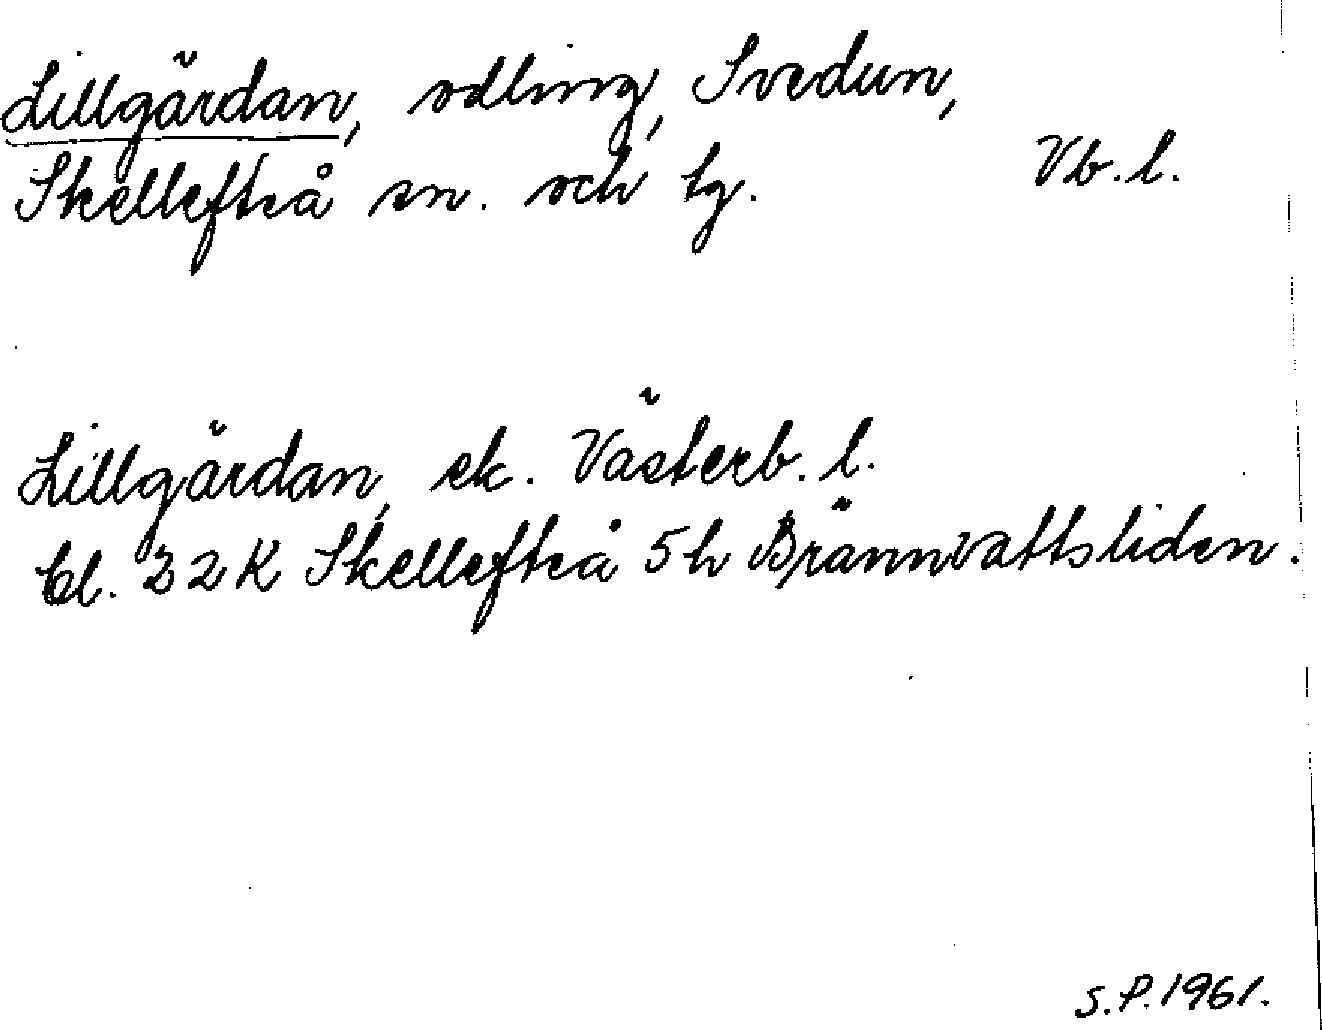 Lillgärdan, odling, Svedun,
Skellefteå sn. och tg. Vb.l.
Lillgärdan, ek. Västerb. l.
bl. 22K Skellefteå 5h Brännvattsliden.
S.P.1961.